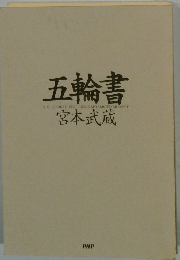 五輪書
宮本武蔵
PHP